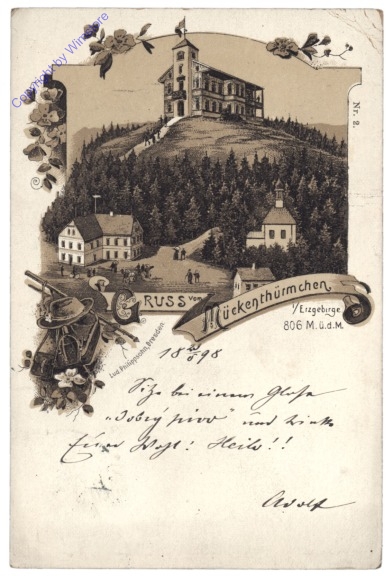 Copyright by Winstore
Nr. 2.
GRUSS vom
Mückenthürmchen
i/Erzgebirge
806 M. ü. d. M.
Lud. Philippsohn, Dresden
18 98
Sitze bei einem Glase
"Dobrý pivo" und trinke
Euer Wohl! Heilo!!
Adolf